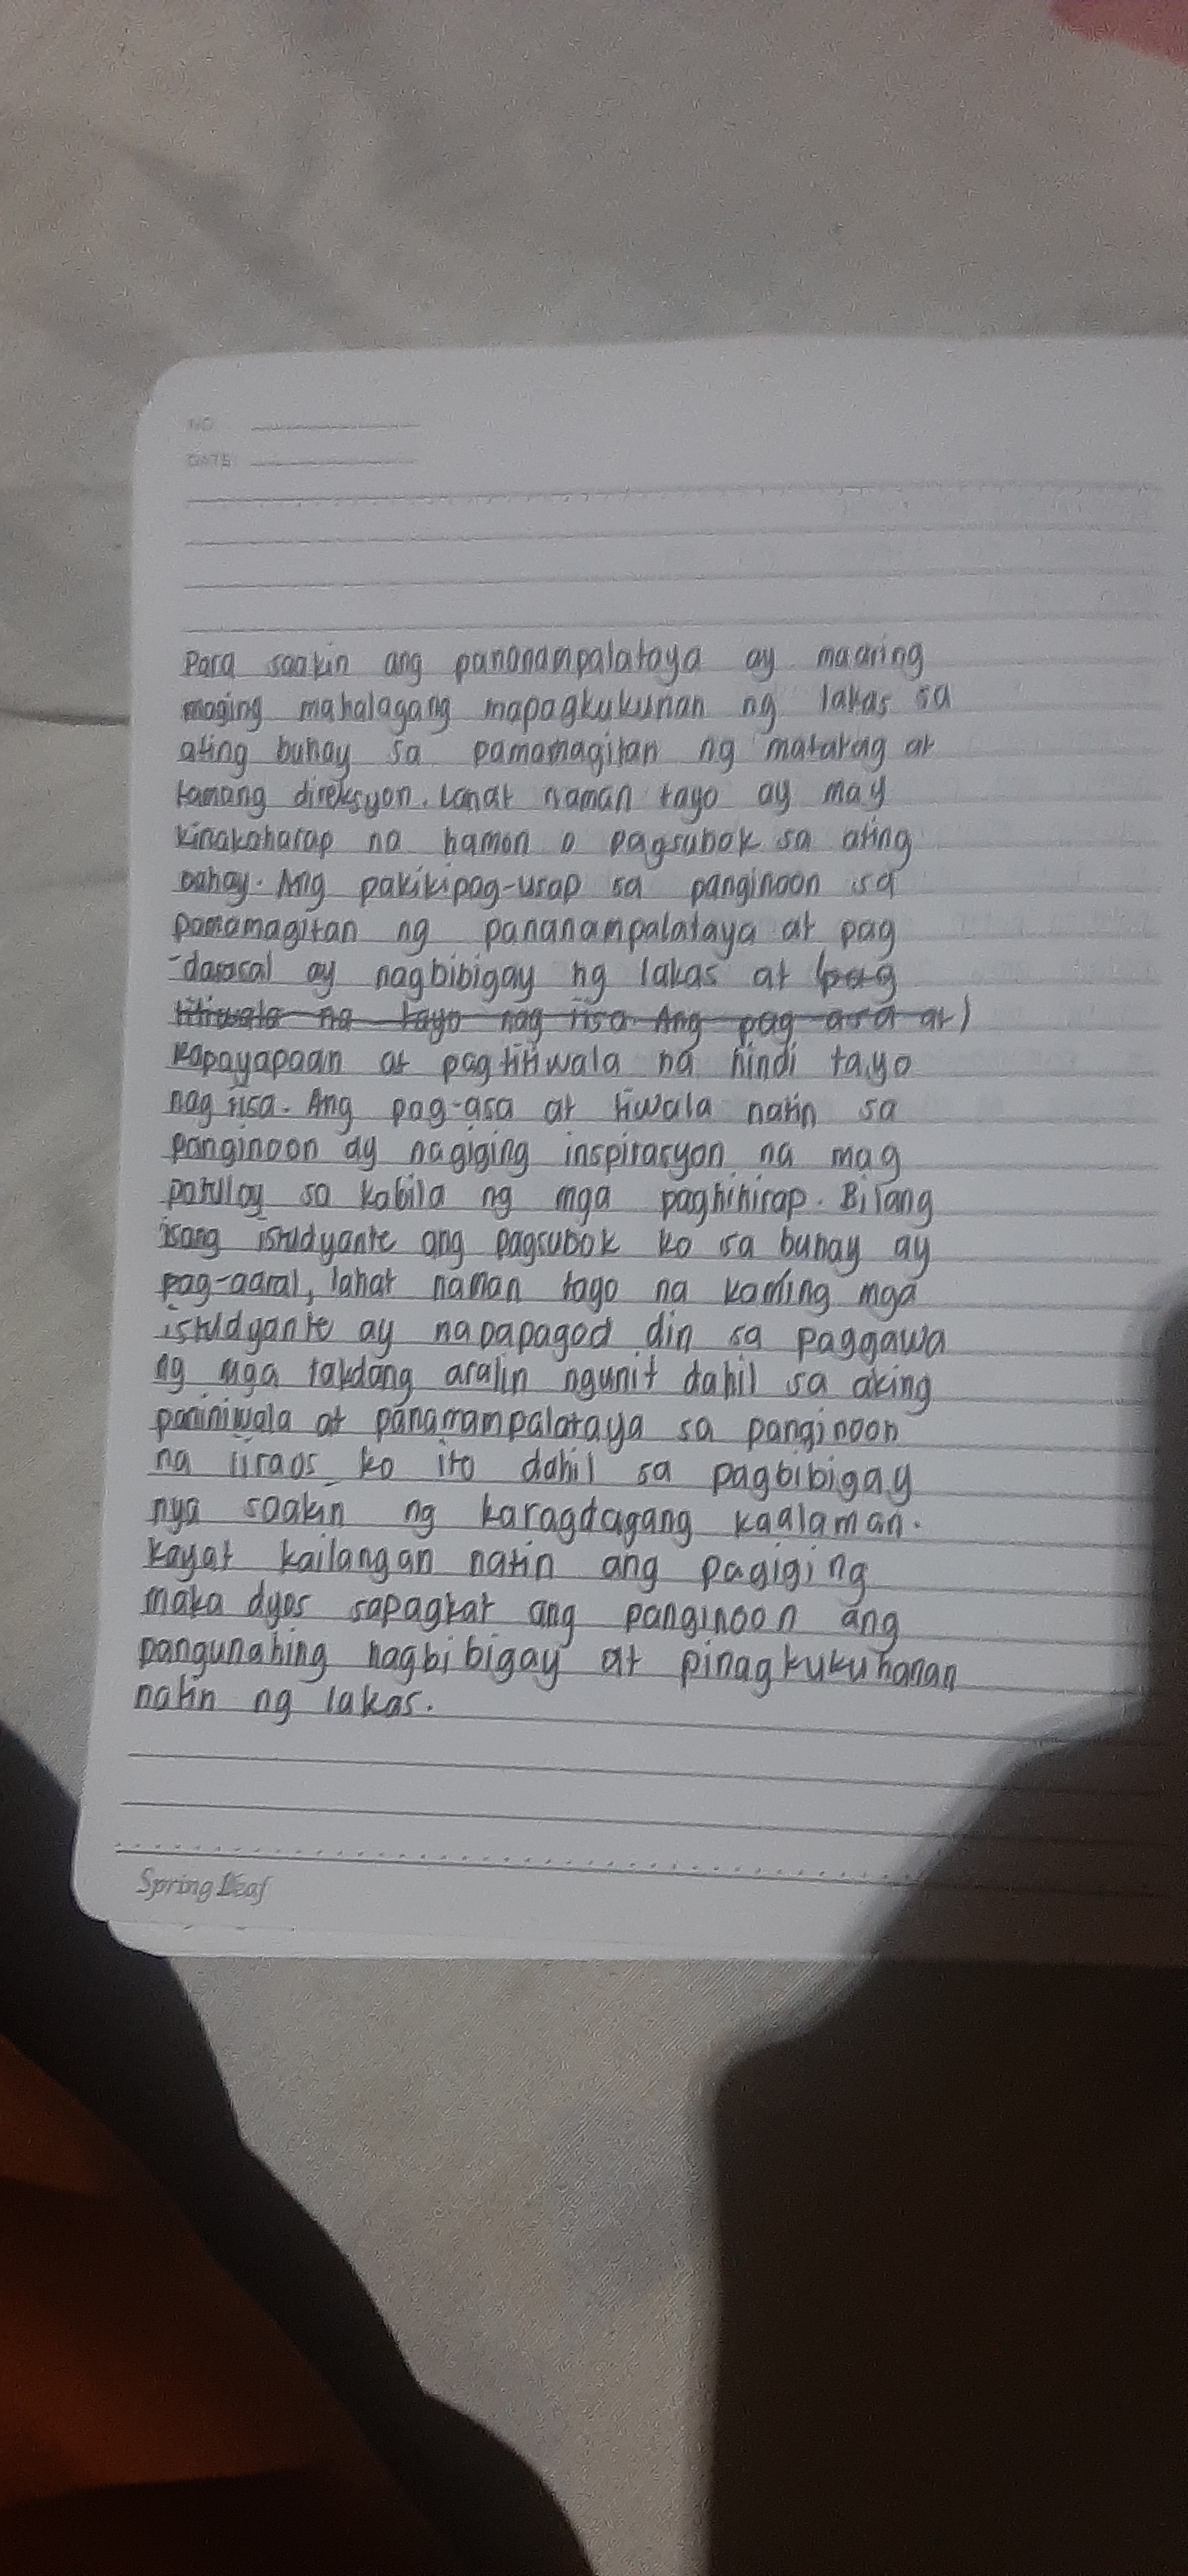 NO
DATE
Para saakin ang pananampalataya ay maaring
maging mahalagang mapagkukunan ng lakas sa
ating buhay sa pamamagitan ng matatag at
tamang direksyon. Lahat naman tayo ay may
kinakaharap na hamon o pagsubok sa ating
buhay. Ang pakikipag-usap sa panginoon sa
pamamagitan ng pananampalataya at pag
-darasal ay nagbibigay ng lakas at (pag
titiwala na tayo nag iisa. Ang pag asa at)
kapayapaan at pagtitiwala na hindi tayo
nag iisa. Ang pag-asa at tiwala natin sa
panginoon ay nagiging inspirasyon na mag
patuloy sa kabila ng mga paghihirap. Bilang
isang istudyante ang pagsubok ko sa buhay ay
pag-aaral, lahat naman tayo na kaming mga
istudyante ay napapagod din sa paggawa
ng mga takdang aralin ngunit dahil sa aking
paniniwala at pananampalataya sa panginoon
na iiraos ko ito dahil sa pagbibigay
nya saakin ng karagdagang kaalaman.
kayat kailangan natin ang pagiging
maka dyos sapagkat ang panginoon ang
pangunahing nagbibigay at pinagkukuhanan
natin ng lakas.
Spring Leaf